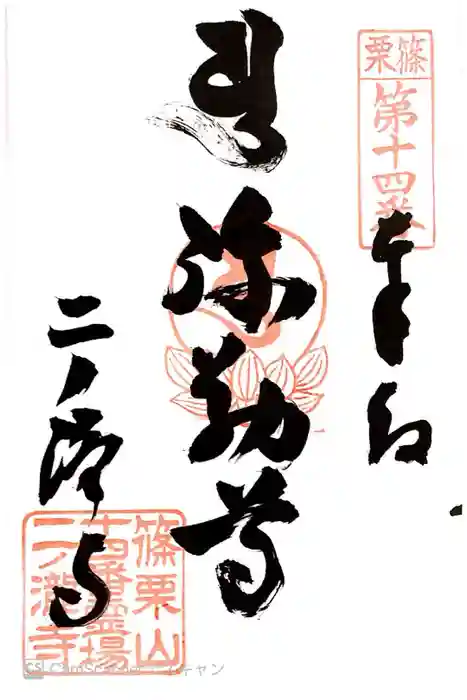 篠栗
第十四番
奉拝
弥勒尊
二ノ滝寺
篠栗山
古番霊場
二ノ滝寺
CS CamScanner でスキャン